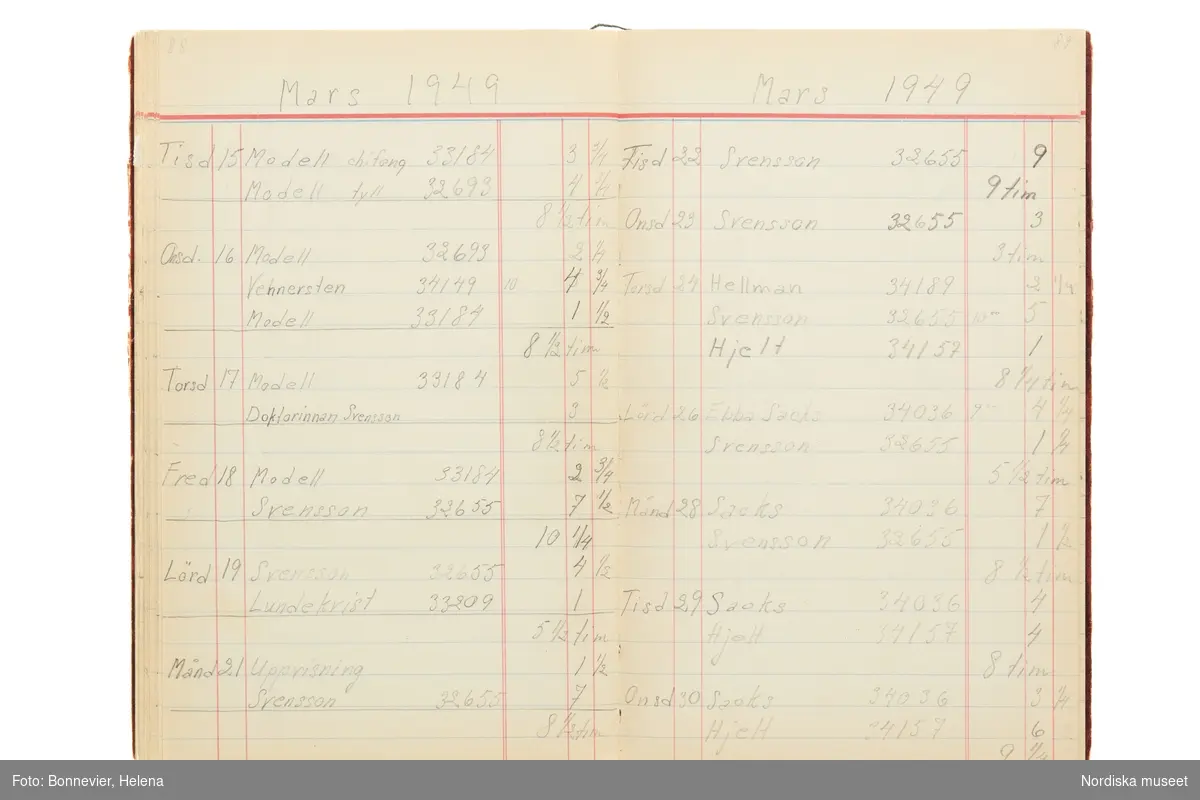 88
Mars 1949
Tisd 15 Modell chifong 33184 3 3/4
Modell tyll 32693 4 3/4
8 1/2 tim
Onsd. 16 Modell 32693 2 1/4
Vennersten 34149 10 4 3/4
Modell 33184 1 1/2
8 1/2 tim
Torsd 17 Modell 33184 5 1/2
Doktorinnan Svensson 3
8 1/2 tim
Fred 18 Modell 33184 2 3/4
Svensson 32655 7 1/2
10 1/4
Lörd 19 Svensson 32655 4 1/2
Lundekvist 33209 1
5 1/2 tim
Månd 21 Uppvisning 1 1/2
Svensson 32655 7
8 1/2 tim
89
Mars 1949
Tisd 22 Svensson 32655 9
9 tim
Onsd 23 Svensson 32655 3
3 tim
Torsd 24 Hellman 34189 2 1/4
Svensson 32655 5
Hjelt 34157 1
8 1/4 tim
Lörd 26 Ebba Sacks 34036 4 1/4
Svensson 32655 1 1/4
5 1/2 tim
Månd 28 Sacks 34036 7
Svensson 32655 1 1/2
8 1/2 tim
Tisd 29 Sacks 34036 4
Hjelt 34157 4
8 tim
Onsd 30 Sacks 34036 3 1/4
Hjelt 34157 6
9 1/4
Foto: Bonnevier, Helena
Nordiska museet